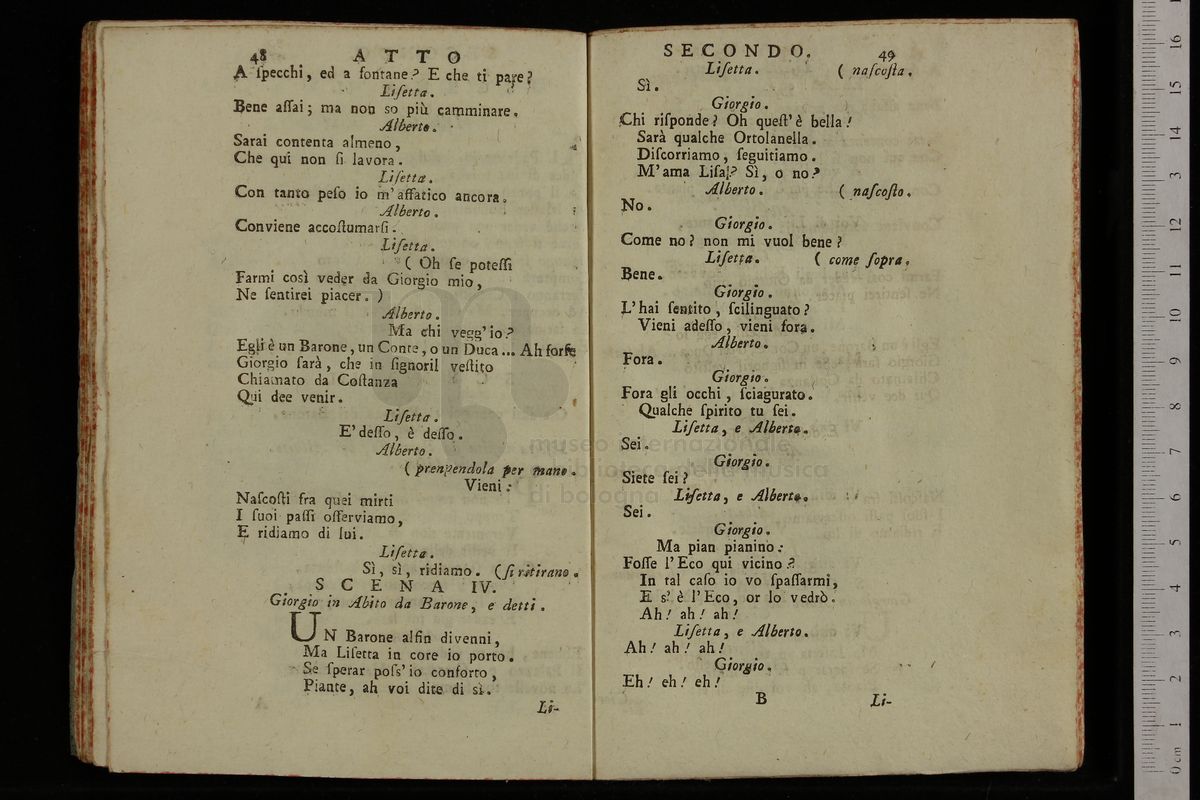 48 ATTO
A ſpecchi, ed a fontane? E che ti pare?
Liſetta.
Bene aſſai; ma non so più camminare.
Alberto.
Sarai contenta almeno,
Che quì non ſi lavora.
Liſetta.
Con tanto peſo io m'affatico ancora.
Alberto.
Conviene accoſtumarſi.
Liſetta.
( Oh ſe poteſſi
Farmi così veder da Giorgio mio,
Ne ſentirei piacer. )
Alberto.
Ma chi vegg'io?
Egli è un Barone, un Conte, o un Duca ... Ah forſe
Giorgio ſarà, che in ſignoril veſtito
Chiamato da Coſtanza
Qui dee venir.
Liſetta.
E' deſſo, è deſſo.
Alberto.
( prenpendola per mano.
Vieni:
Naſcoſti fra quei mirti
I ſuoi paſſi oſſerviamo,
E ridiamo di lui.
Liſetta.
Sì, sì, ridiamo. (ſi ritirano.
SCENA IV.
Giorgio in Abito da Barone, e detti.
UN Barone alfin divenni,
Ma Liſetta in core io porto.
Se ſperar poſs'io conforto,
Piante, ah voi dite di sì.
Li-
SECONDO. 49
Liſetta. ( naſcoſta.
Sì.
Giorgio.
Chi riſponde? Oh queſt'è bella!
Sarà qualche Ortolanella.
Diſcorriamo, ſeguitiamo.
M'ama Liſa? Sì, o no?
Alberto. ( naſcoſto.
No.
Giorgio.
Come no? non mi vuol bene?
Liſetta. ( come ſopra.
Bene.
Giorgio.
L'hai ſentito, ſcilinguato?
Vieni adeſſo, vieni fora.
Alberto.
Fora.
Giorgio.
Fora gli occhi, ſciagurato.
Qualche ſpirito tu ſei.
Liſetta, e Alberto.
Sei.
Giorgio.
Siete ſei?
Liſetta, e Alberto.
Sei.
Giorgio.
Ma pian pianino:
Foſſe l'Eco qui vicino?
In tal caſo io vo ſpaſſarmi,
E s' è l'Eco, or lo vedrò.
Ah! ah! ah!
Liſetta, e Alberto.
Ah! ah! ah!
Giorgio.
Eh! eh! eh!
B Li-
museo internazionale
e biblioteca della musica
di bologna
0 cm 1 2 3 4 5 6 7 8 9 10 11 12 13 14 15 16